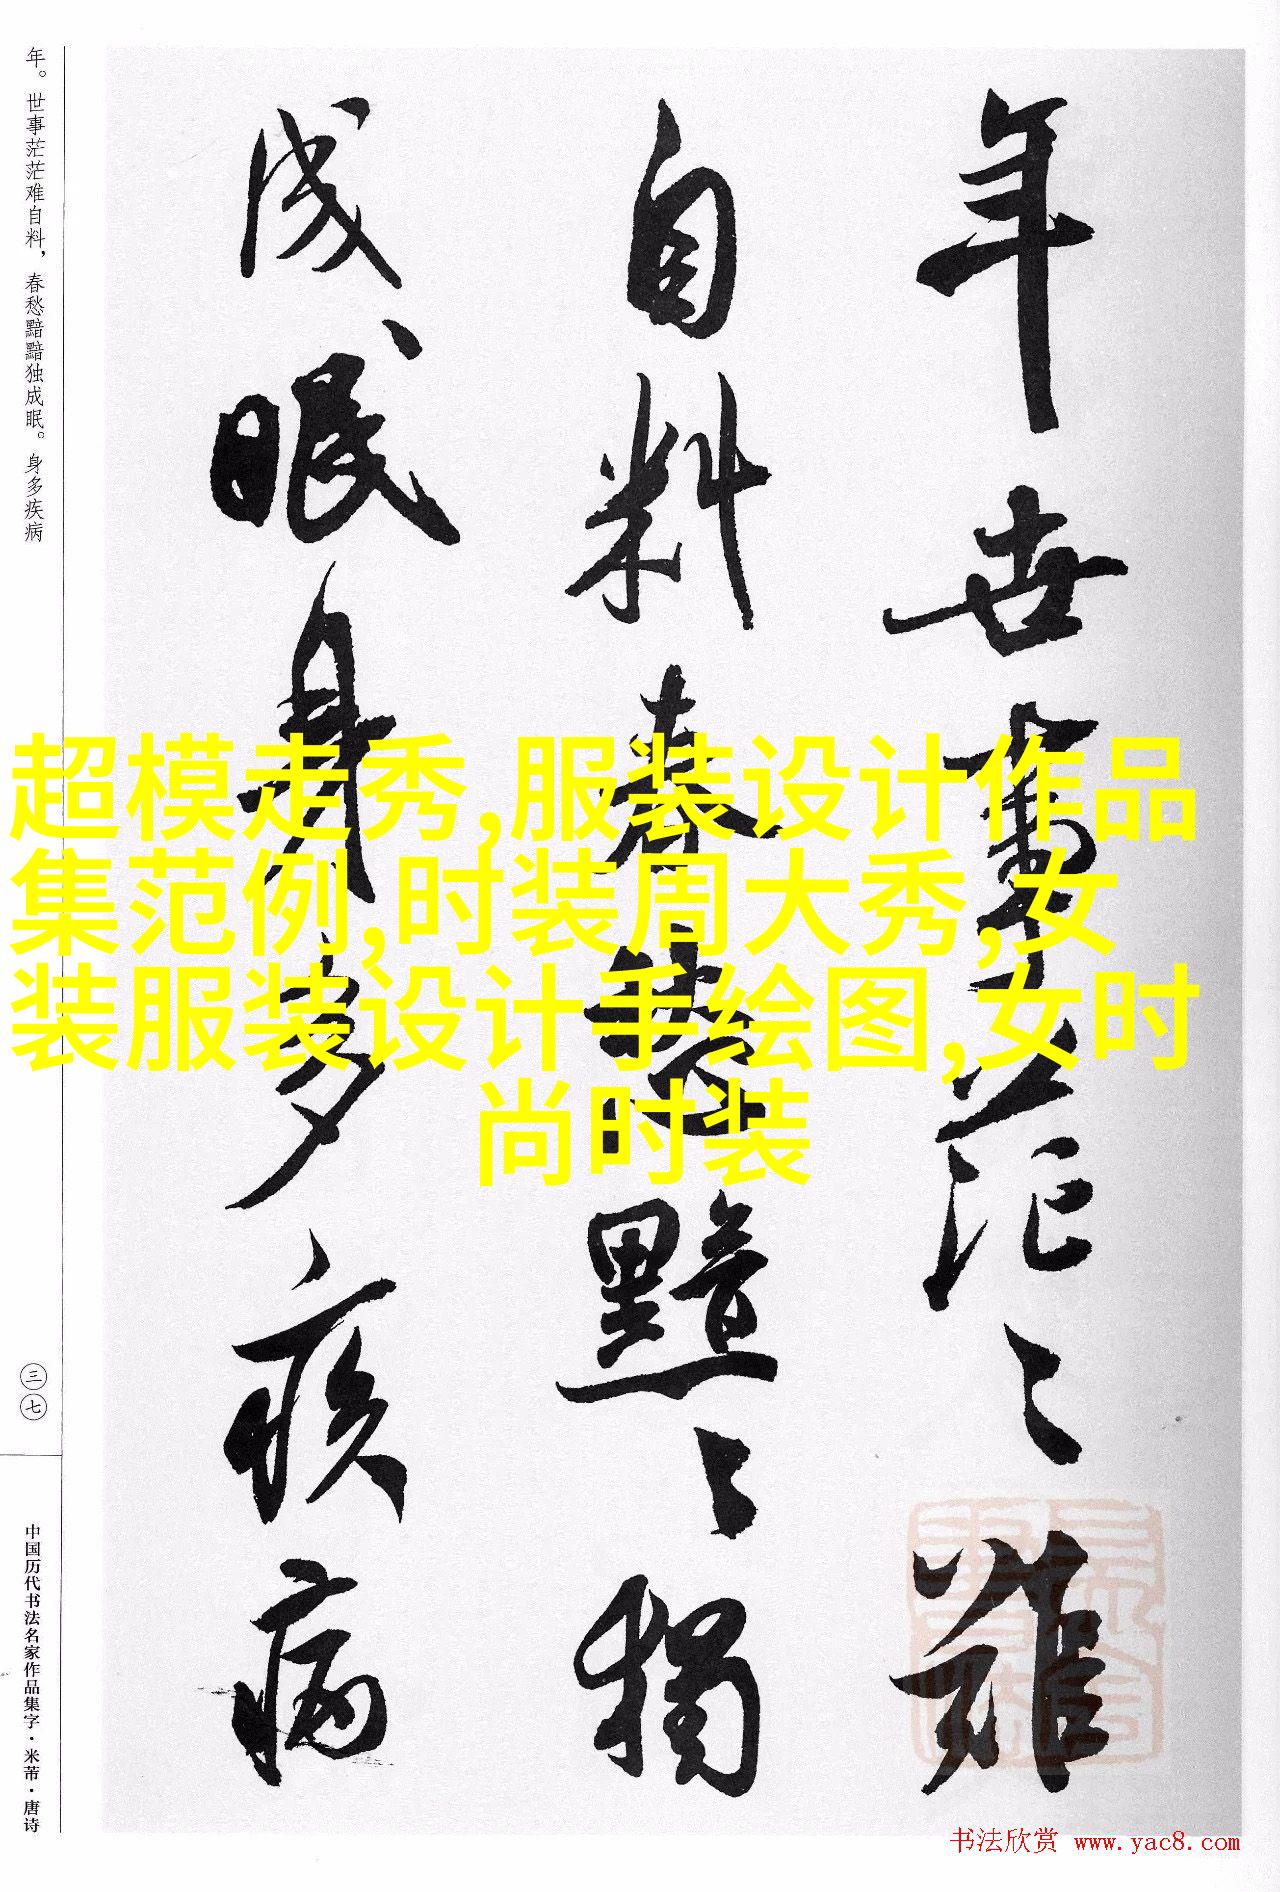 年世事茫茫难
自料春愁黯黯独
成眠身多疾病
年。世事茫茫难自料，春愁黯黯独成眠。身多疾病
三七
中国历代书法名家作品集字·米芾·唐诗
超模走秀,服装设计作品
集范例,时装周大秀,女
装服装设计手绘图,女时
尚时装
书法欣赏 www.yac8.com